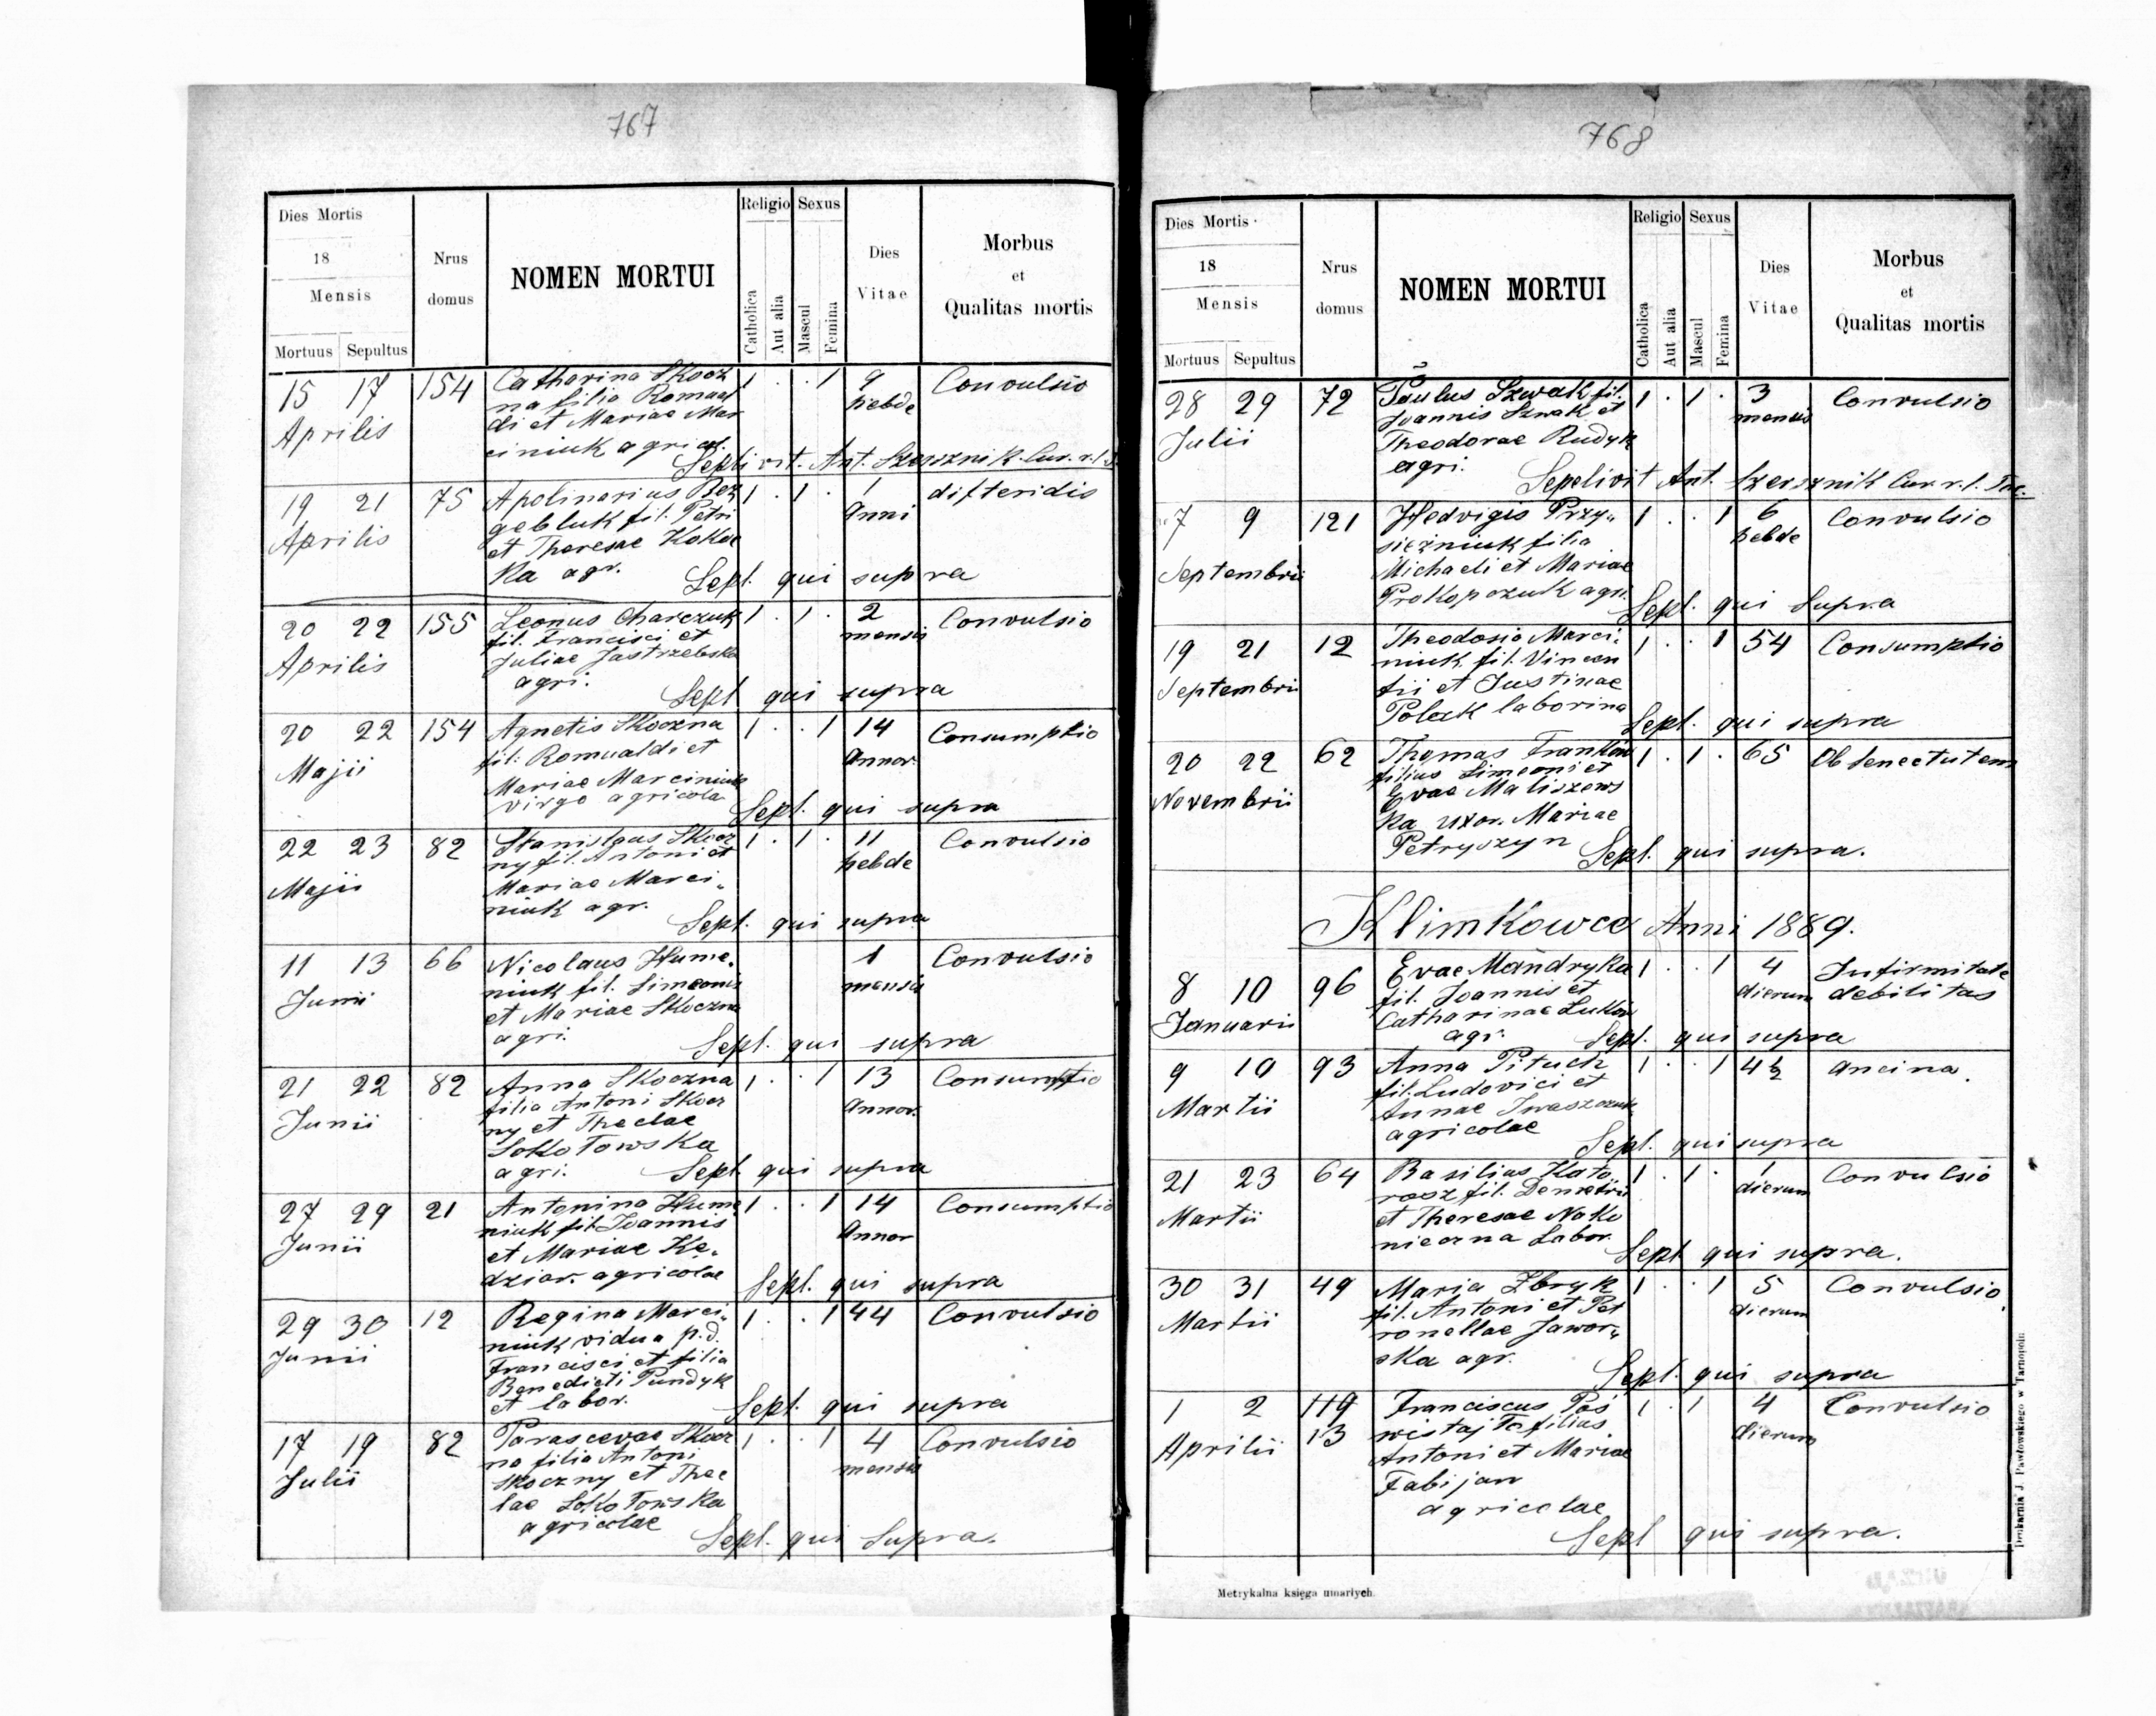 767
Dies Mortis
18
Mensis
Mortuus Sepultus
Nrus
domus
NOMEN MORTUI
Religio Sexus
Catholica
Aut alia
Mascul
Femina
Dies
Vitae
Morbus
et
Qualitas mortis
15 17 154 Catharina Skocz 1 . . 1 9 Convulsio
Aprilis na filia Romual hebde
di et Mariae Mar
ciniuk agricol.
Sepelivit. Ant. Szersznik Cur. r. l.
19 21 75 Apolinarius Bez 1 . 1 . 1 difteridis
Aprilis gebluk fil. Petri Anni
et Theresae Kokoc
ka agr.
Sepl. qui supra
20 22 155 Leonus Charczuk 1 . 1 . 2 Convulsio
Aprilis fil. Francisci et mensis
Juliae Jastrzebska
agri.
Sepl qui supra
20 22 154 Agnetis Skoczna 1 . . 1 14 Consumptio
Majii fil. Romualdi et Annor
Mariae Marciniuk
virgo agricola
Sepl. qui supra
22 23 82 Stanislaus Skocz 1 . 1 . 11 Convulsio
Majii ny fil. Antoni et hebde
Mariae Marci„
niuk agr.
Sepl. qui supra
11 13 66 Nicolaus Hume„ 1 Convulsio
Junii niuk fil. Simeonis mensis
et Mariae Skoczna
agri.
Sepl. qui supra
21 22 82 Anna Skoczna 1 . . 1 13 Consumptio
Junii filia Antoni Skocz Annor.
ny et Theclae
Sokołowska
agri.
Sepl qui supra
27 29 21 Antonina Hume 1 . . 1 14 Consumptio
Junii niuk fil. Joannis Annor
et Mariae Kę„
dzior. agricolae
Sepl. qui supra
29 30 12 Regina Marci„ 1 . . 1 44 Convulsio
Junii niuk vidua p.d.
Francisci et filia
Benedicti Pundyk
et labor.
Sepl. qui supra
17 19 82 Parascevae Skocz 1 . . 1 4 Convulsio
Julii na filia Antoni mensis
Skoczny et Thec
lae Sokołowska
agricolae
Sepl. qui Supra.
768
Dies Mortis
18
Mensis
Mortuus Sepultus
Nrus
domus
NOMEN MORTUI
Religio Sexus
Catholica
Aut alia
Mascul
Femina
Dies
Vitae
Morbus
et
Qualitas mortis
28 29 72 Paulus Szwak fil. 1 . 1 . 3 Convulsio
Julii Joannis Szwak et mensis
Theodorae Rudyk
agri.
Sepelivit Ant. Szersznik Cur. r. l.
7 9 121 Hedvigis Przy„ 1 . . 1 6 Convulsio
Septembrii siężniuk filia hebde
Michaeli et Mariae
Prokopczuk agri.
Sepl. qui Supra
19 21 12 Theodosia Marci„ 1 . . 1 54 Consumptio
Septembrii niuk fil. Vincen
tii et Justinae
Polak laborina
Sepl. qui supra
20 22 62 Thomas Franków 1 . 1 . 65 Ob senectutem
Novembrii filius Simeoni et
Evae Maliszews
ka uxor. Mariae
Petryszyn
Sepl. qui supra.
Klimkowce Anni 1889.
8 10 96 Evae Mandryka 1 . . 1 4 Infirmitate
Januarii fil. Joannis et dierum debilitas
Catharinae Luków
agr.
Sepl. qui supra
9 10 93 Anna Pituch 1 . . 1 4½ Ancina
Martii fil. Ludovici et
Annae Iwaszczuk
agricolae
Sepl. qui supra
21 23 64 Basilius Kato 1 . 1 . 1 Convulsio
Martii rosz fil. Demetrii dierum
et Theresae Nako
nieczna Labor.
Sepl qui supra.
30 31 49 Maria Zbryk 1 . . 1 5 Convulsio
Martii fil. Antoni et Pet dierum
ronellae Jawor„
ska agr.
Sepl. qui supra
1 2 119 Franciscus Pos 1 . 1 4 Convulsio
Aprilii 13 wistajło filius dierum
Antoni et Mariae
Fabijan
agricolae
Sepl qui supra.
Metrykalna księga umarłych.
Drukarnia J. Pawłowskiego w Tarnopolu